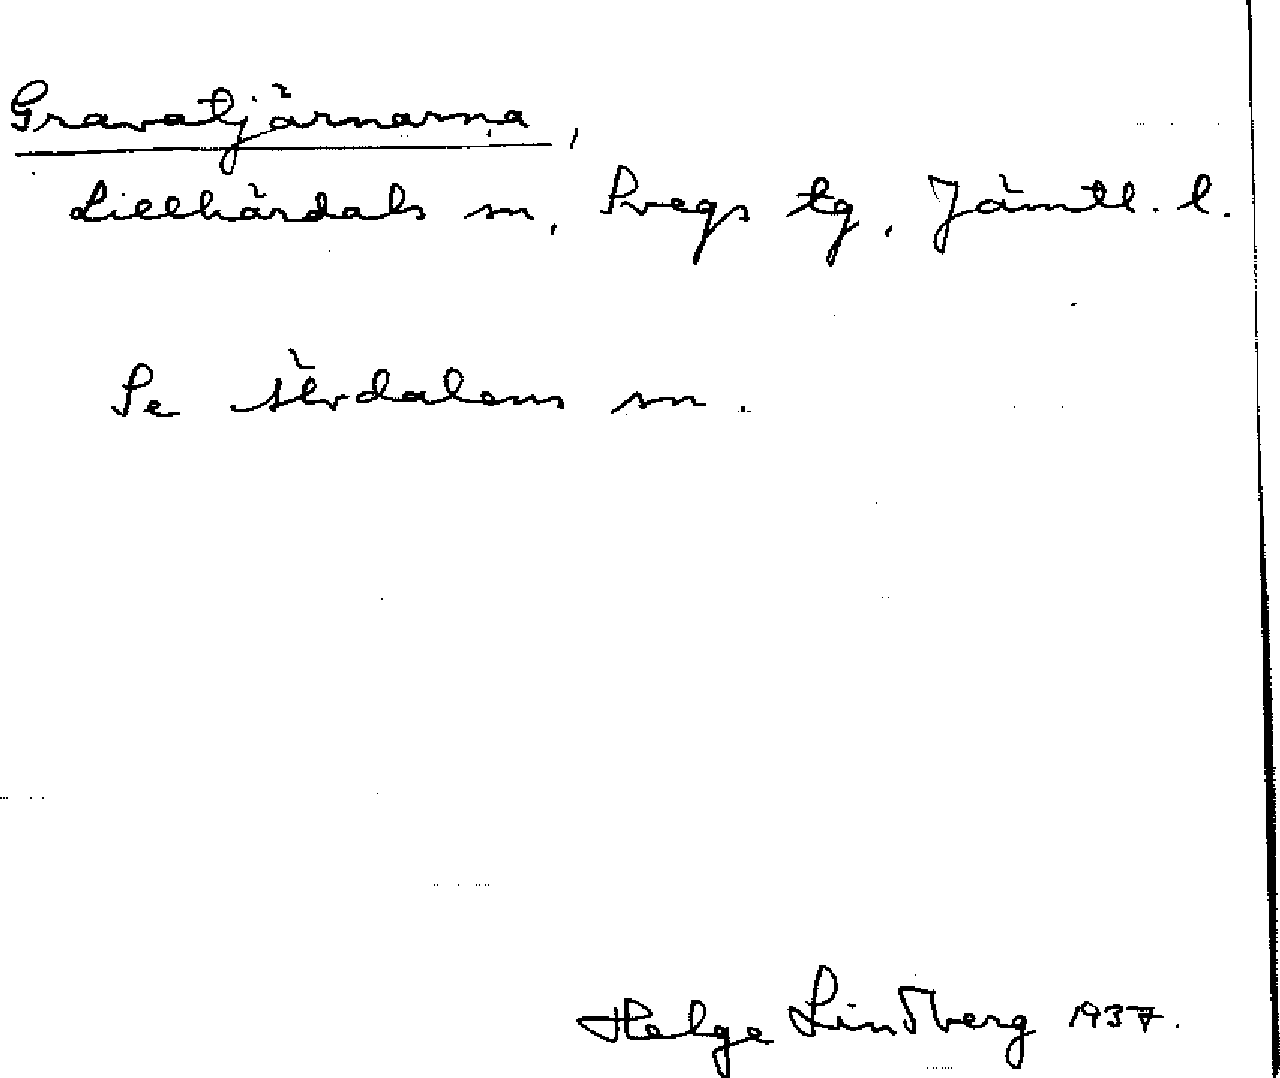 Gravatjärnarna,
Lillhärdals sn, Svegs tg, Jämtl. l.
Se Älvdalens sn.
Helge Lindberg 1937.